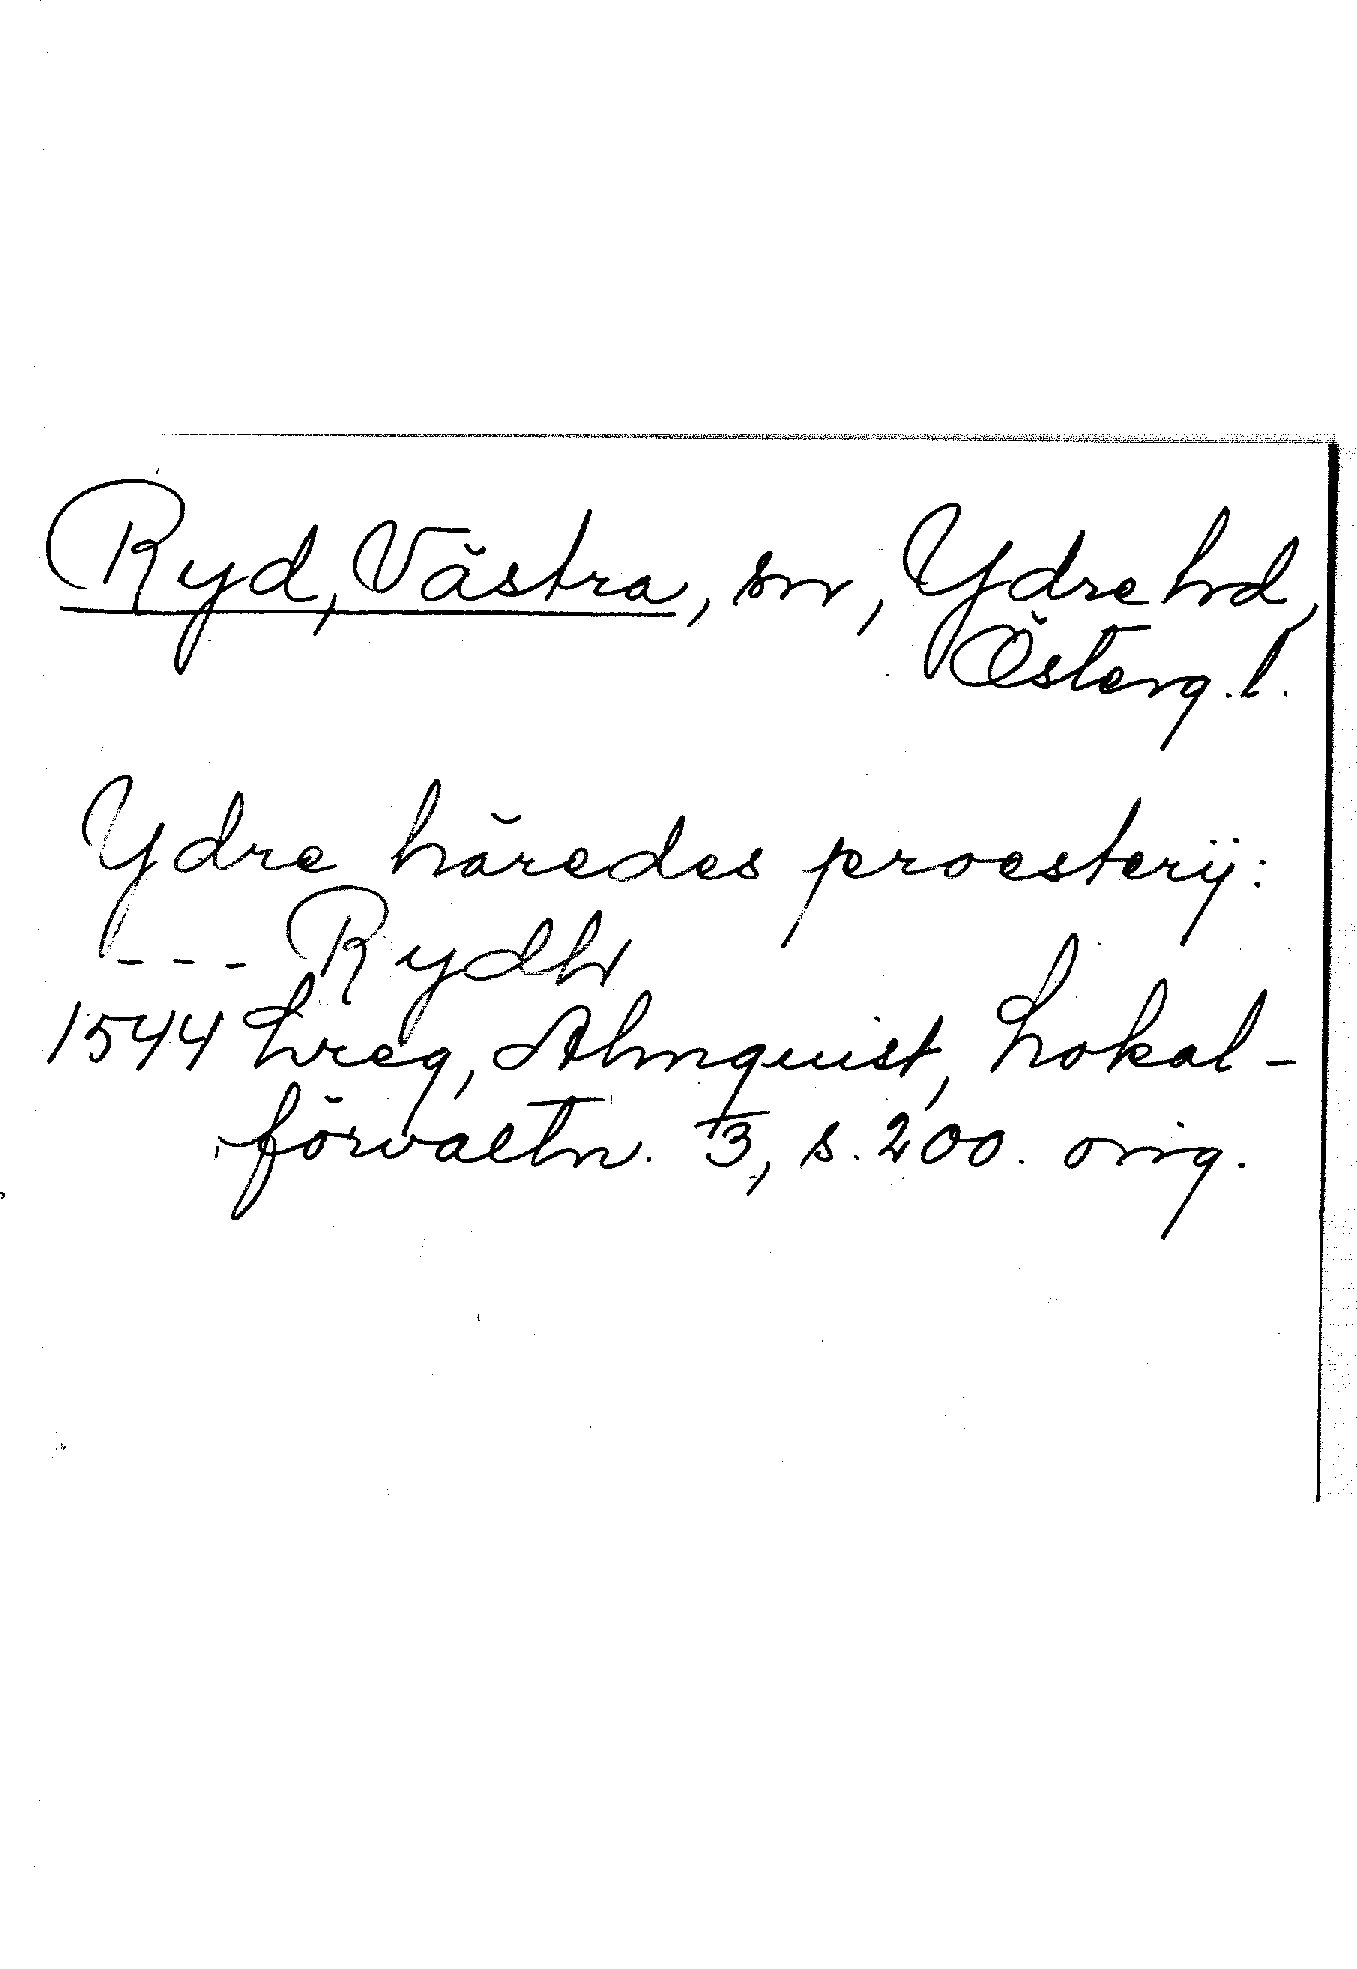 Ryd, Västra, sn, Ydre hd,
Österg. l.
Ydre häredes proesterij:
--- Rydh
1544 Lreg, Almquist, Lokal-
förvaltn. 3, s. 200. orig.